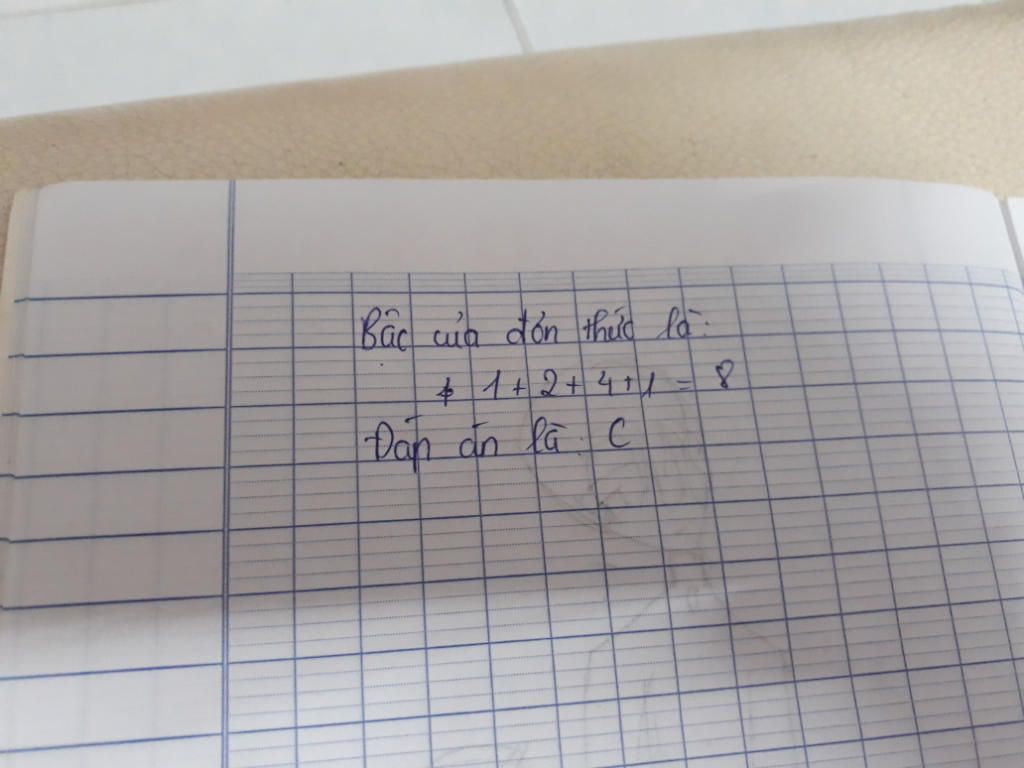 Bậc của đơn thức là:
1 + 2 + 4 + 1 = 8
Đáp án là: C